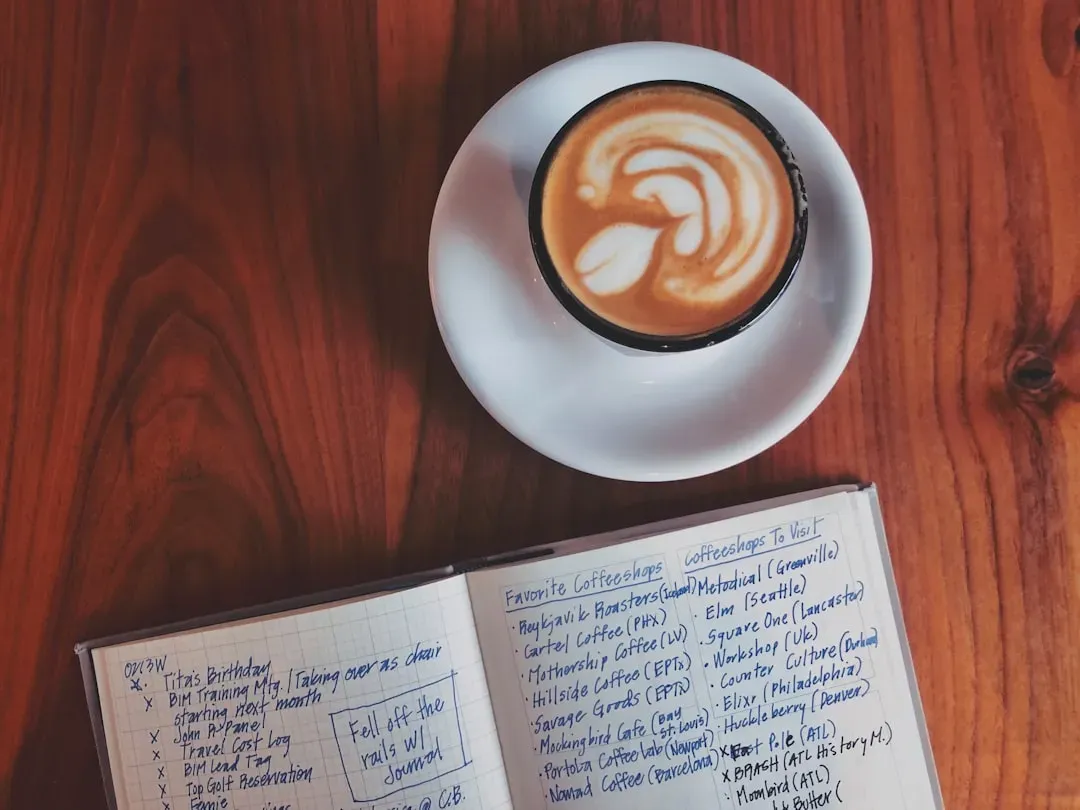 01/23W
x. Tita's Birthday
x BIM Training Mtg. / Taking over as chair
starting next month
x John R. Panel
x Travel Cost Log
x BIM Lead Tag
x Top Golf Reservation
Fell off the
rails w/
Journal
@ C.B.
Favorite Coffeeshops
· Reykjavik Roasters (Iceland)
· Cartel Coffee (PHX)
· Mothership Coffee (LV)
· Hillside Coffee (EPTx)
· Savage Goods (EPTx)
· Mockingbird Cafe (Bay
St. Louis)
· Portola Coffee Lab (Newport)
· Nomad Coffee (Barcelona)
Coffeeshops To Visit
· Metodical (Greenville)
· Elm (Seattle)
· Square One (Lancaster)
· Workshop (UK)
· Counter Culture (Durham)
· Elixr (Philadelphia)
· Huckleberry (Denver)
x East Pole (ATL)
x BRASH (ATL History M.)
· Moonbird (ATL)
Butter (